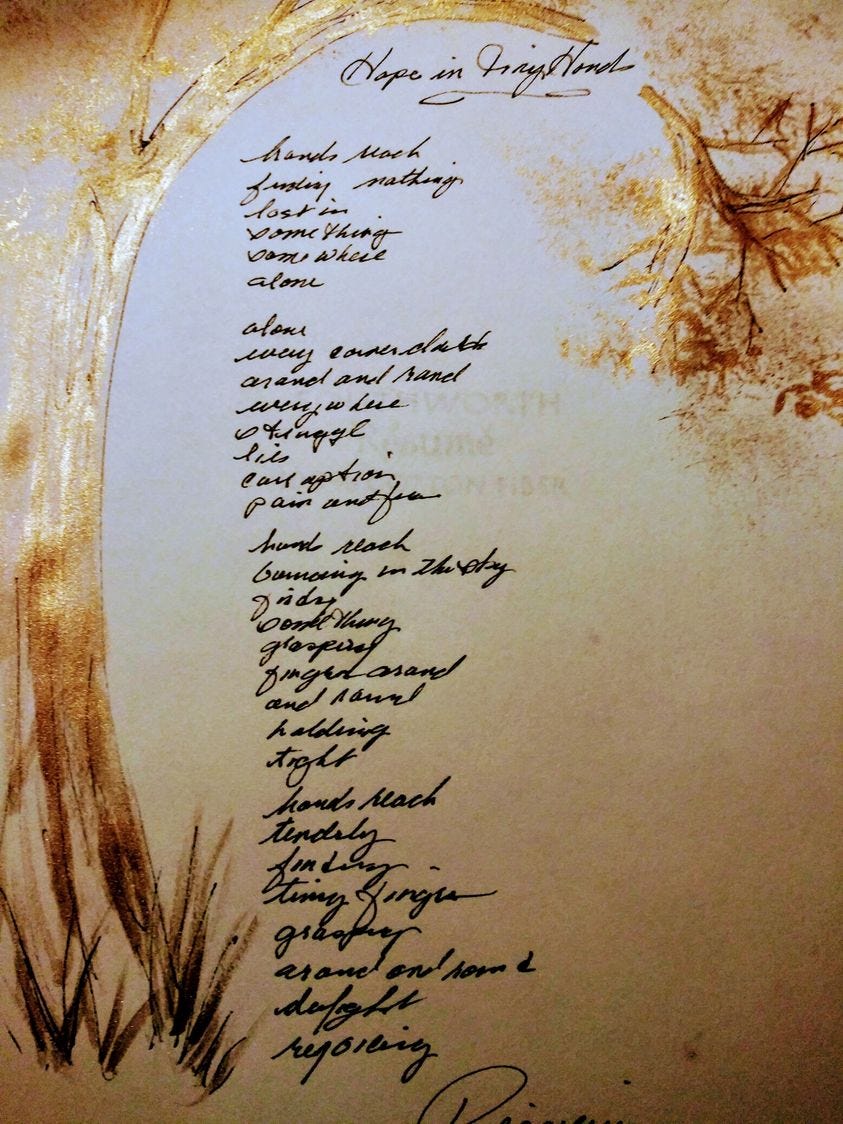 Hope in Tiny Hands
hands reach
finding nothing
lost in
something
somewhere
alone
alone
every corner
around and round
everywhere
struggl
lies
corruption
pain and
hands reach
in the sky
finding
something
grasping
fingers around
and round
holding
tight
hands reach
tenderly
finding
tiny fingers
grasping
around and round
delight
rejoicing